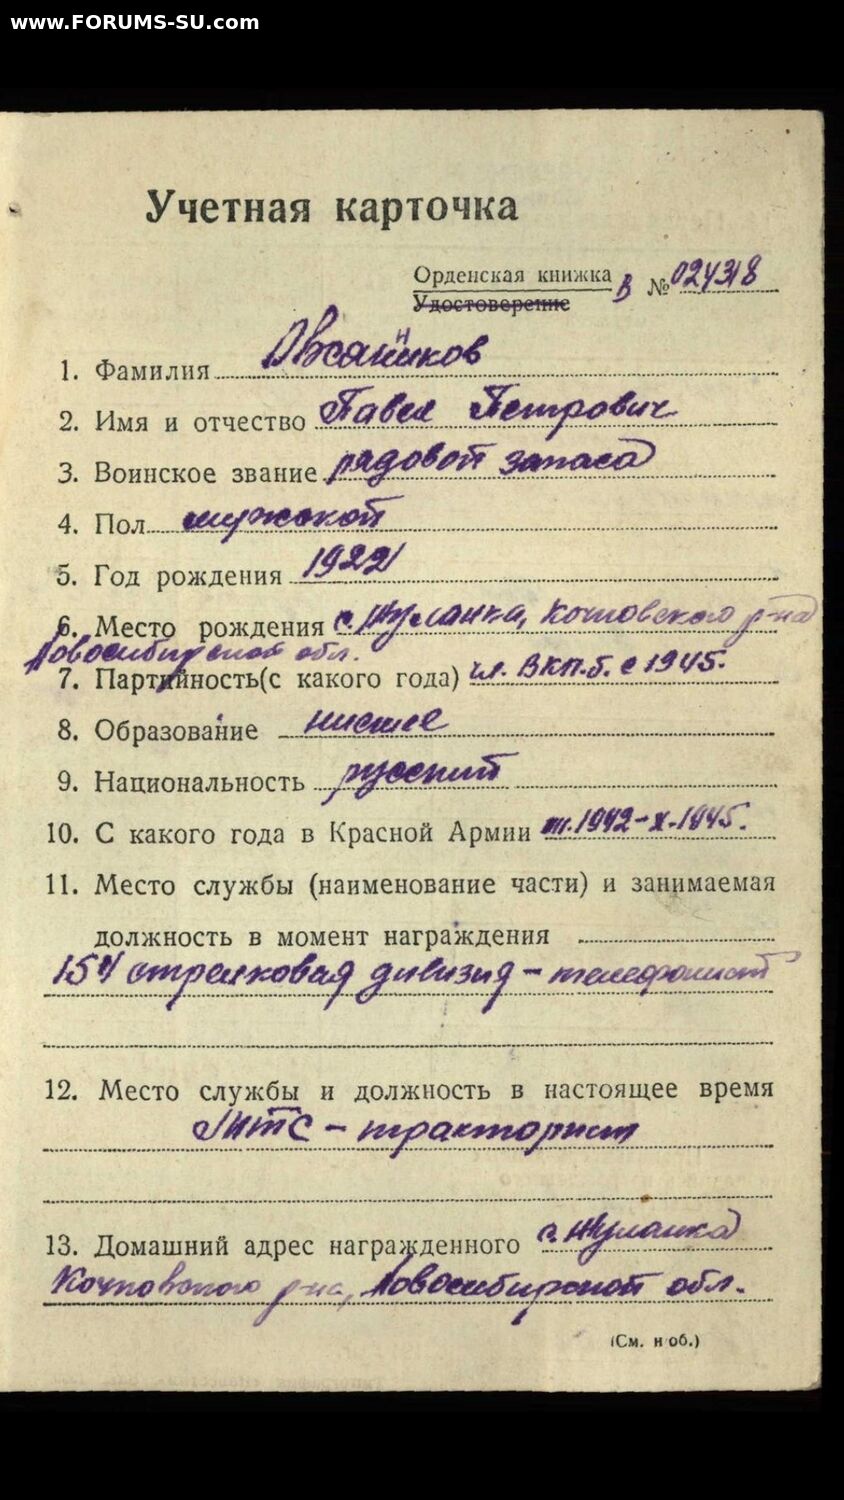 www.FORUMS-SU.com
Учетная карточка
Орденская книжка В № 024318
Удостоверение
1. Фамилия Овсянников
2. Имя и отчество Павел Петрович
3. Воинское звание рядовой запаса
4. Пол мужской
5. Год рождения 1922
6. Место рождения с. Жуланка, Кочковского р-на
Новосибирской обл.
7. Партийность (с какого года) чл. ВКП.б. с 1945.
8. Образование низшее
9. Национальность русский
10. С какого года в Красной Армии 1942-X-1945.
11. Место службы (наименование части) и занимаемая
должность в момент награждения
154 стрелковая дивизия - телефонист
12. Место службы и должность в настоящее время
МТС - тракторист
13. Домашний адрес награжденного с. Жуланка
Кочковского р-на, Новосибирской обл.
(См. н об.)